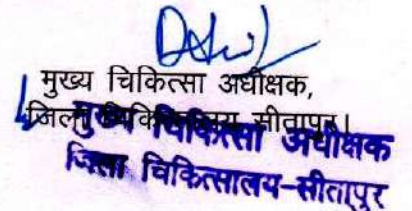 मुख्य चिकित्सा अधीक्षक,
जिला चिकित्सालय सीतापुर।
मुख्य चिकित्सा अधीक्षक
जिला चिकित्सालय-सीतापुर